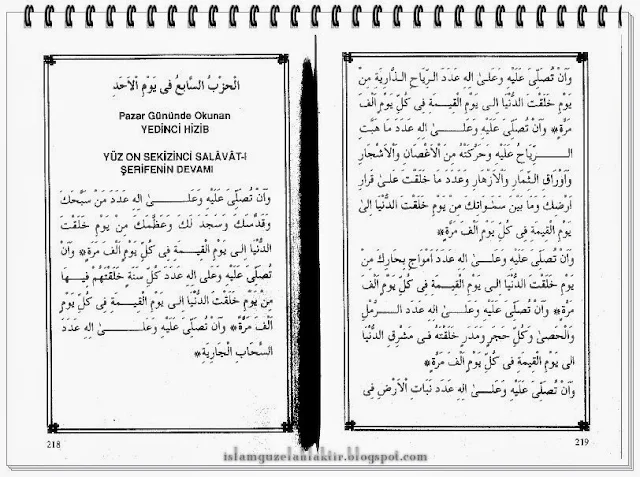 اَلْحِزْبُ السَّابِعُ فِى يَوْمِ الْاَحَدِ
Pazar Gününde Okunan
YEDİNCİ HİZİB
YÜZ ON SEKİZİNCİ SALÂVÂT-I
ŞERİFENİN DEVAMI
وَاَنْ تُصَلِّىَ عَلَيْهِ وَعَلٰى اٰلِهِ عَدَدَ مَنْ سَبَّحَكَ
وَقَدَّسَكَ وَسَجَدَ لَكَ وَعَظَّمَكَ مِنْ يَوْمِ خَلَقْتَ
الدُّنْيَا اِلٰى يَوْمِ الْقِيٰمَةِ فِى كُلِّ يَوْمٍ اَلْفَ مَرَّةٍ * وَاَنْ
تُصَلِّىَ عَلَيْهِ وَعَلٰى اٰلِهِ عَدَدَ كُلِّ سَنَةٍ خَلَقْتَهُمْ فِيهَا
مِنْ يَوْمِ خَلَقْتَ الدُّنْيَا اِلٰى يَوْمِ الْقِيٰمَةِ فِى كُلِّ يَوْمٍ
اَلْفَ مَرَّةٍ * وَاَنْ تُصَلِّىَ عَلَيْهِ وَعَلٰى اٰلِهِ عَدَدَ
السَّحَابِ الْجَارِيَةِ *
218
وَاَنْ تُصَلِّىَ عَلَيْهِ وَعَلٰى اٰلِهِ عَدَدَ الرِّيَاحِ الذَّارِيَةِ مِنْ
يَوْمِ خَلَقْتَ الدُّنْيَا اِلٰى يَوْمِ الْقِيٰمَةِ فِى كُلِّ يَوْمٍ اَلْفَ
مَرَّةٍ * وَاَنْ تُصَلِّىَ عَلَيْهِ وَعَلٰى اٰلِهِ عَدَدَ مَا هَبَّتِ
الرِّيَاحُ عَلَيْهِ وَحَرَّكَتْهُ مِنَ الْاَغْصَانِ وَالْاَشْجَارِ
وَاَوْرَاقِ الثِّمَارِ وَالْاَزْهَارِ وَعَدَدَ مَا خَلَقْتَ عَلٰى قَرَارِ
اَرْضِكَ وَمَا بَيْنَ سَمٰوَاتِكَ مِنْ يَوْمِ خَلَقْتَ الدُّنْيَا اِلٰى
يَوْمِ الْقِيٰمَةِ فِى كُلِّ يَوْمٍ اَلْفَ مَرَّةٍ *
وَاَنْ تُصَلِّىَ عَلَيْهِ وَعَلٰى اٰلِهِ عَدَدَ اَمْوَاجِ بِحَارِكَ مِنْ
يَوْمِ خَلَقْتَ الدُّنْيَا اِلٰى يَوْمِ الْقِيٰمَةِ فِى كُلِّ يَوْمٍ اَلْفَ
مَرَّةٍ * وَاَنْ تُصَلِّىَ عَلَيْهِ وَعَلٰى اٰلِهِ عَدَدَ الرَّمْلِ
وَالْحَصٰى وَكُلِّ حَجَرٍ وَمَدَرٍ خَلَقْتَهُ فِى مَشْرِقِ الدُّنْيَا
اِلٰى يَوْمِ الْقِيٰمَةِ فِى كُلِّ يَوْمٍ اَلْفَ مَرَّةٍ *
وَاَنْ تُصَلِّىَ عَلَيْهِ وَعَلٰى اٰلِهِ عَدَدَ نَبَاتِ الْاَرْضِ فِى
219
islamguzelahlaktir.blogspot.com